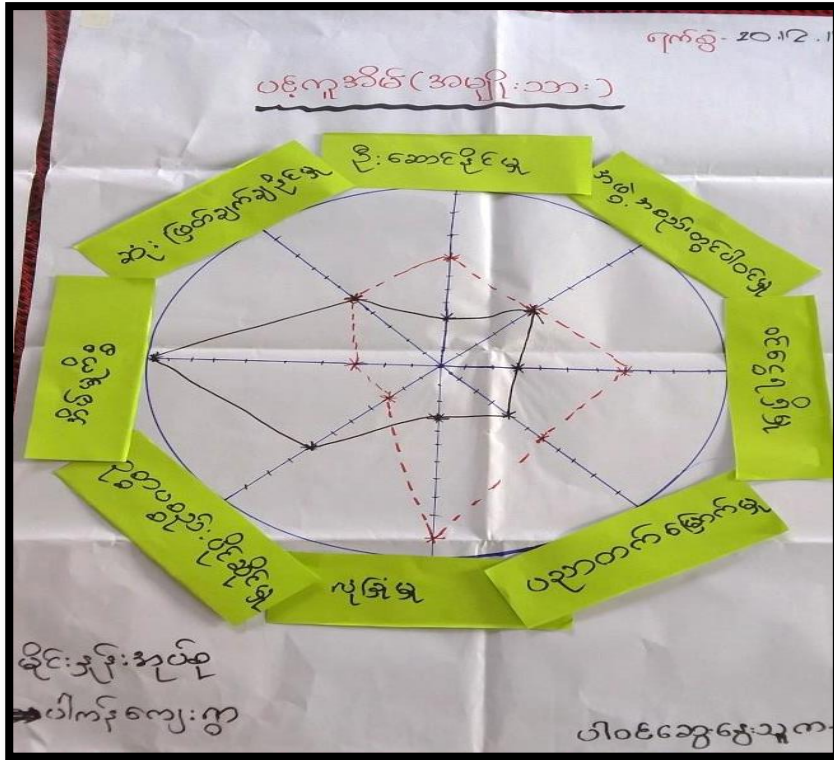 ရက်စွဲ- 20.12.1
ပင့်ကူအိမ် (အမျိုးသား)
ဦးဆောင်နိုင်မှု
အဖွဲ့အစည်းတွင်ပါဝင်မှု
ဝင်ငွေရရှိမှု
ပညာတက်မြောက်မှု
လုံခြုံမှု
ဥစ္စာပစ္စည်းပိုင်ဆိုင်မှု
အိမ်မှု
ဆုံးဖြတ်ချက်ချနိုင်မှု
မိုင်းနှုန်းအုပ်စု
ပါကန်ကျေးရွာ
ပါဝင်ဆွေးနွေးသူက